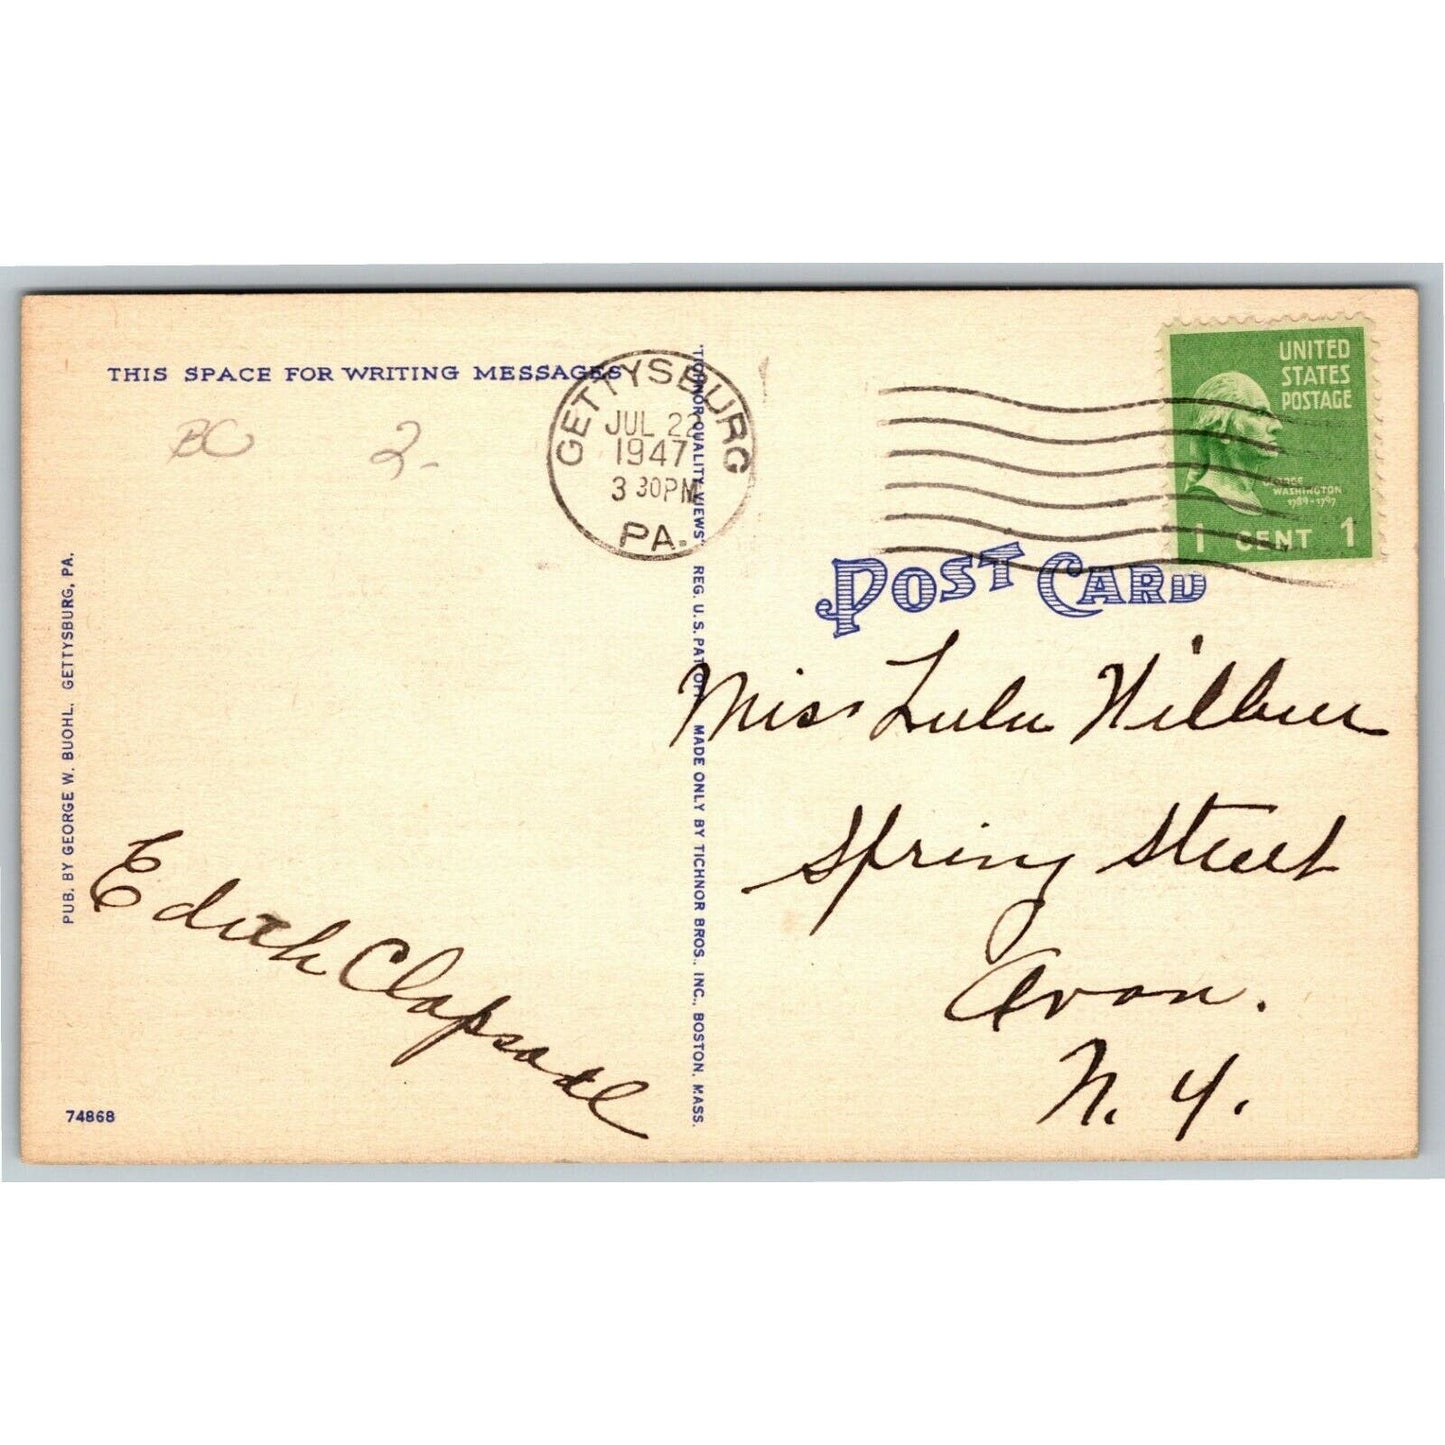 THIS SPACE FOR WRITING MESSAGES
BC 2-
GETTYSBURG
JUL 22
1947
3 30PM
PA.
UNITED
STATES
POSTAGE
GEORGE
WASHINGTON
1789-1797
1 CENT 1
POST CARD
Miss Lulu Wilbur
Spring Street
Avon.
N. Y.
Edith Clapsadl
PUB. BY GEORGE W. BUOHL. GETTYSBURG, PA.
"TICHNOR QUALITY VIEWS" REG. U. S. PAT. OFF. MADE ONLY BY TICHNOR BROS., INC., BOSTON, MASS.
74868